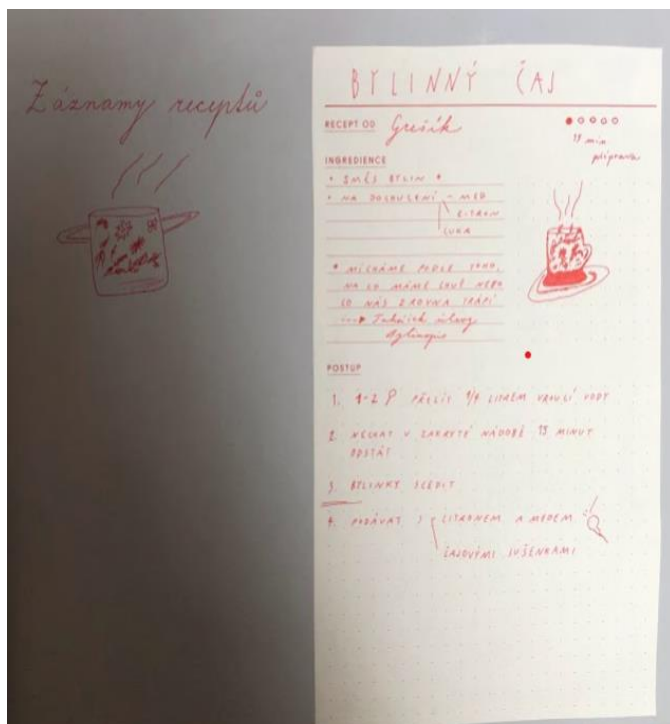 Záznamy receptů
BYLINNÝ ČAJ
RECEPT OD Grešík
15 min
příprava
INGREDIENCE
• SMĚS BYLIN *
• NA DOCHUCENÍ - MED
CITRON
CUKR
* MÍCHÁME PODLE TOHO,
NA CO MÁME CHUŤ NEBO
CO NÁS ZROVNA TRÁPÍ
Tahájek
POSTUP
1. 1-2 PŘELÍT 1/4 LITREM VROUCÍ VODY
2. NECHAT V ZAKRYTÉ NÁDOBĚ 15 MINUT
ODSTÁT
3. BYLINKY SCEDIT
4. PODÁVAT S CITRONEM A MEDEM
ČAJOVÝMI SUŠENKAMI